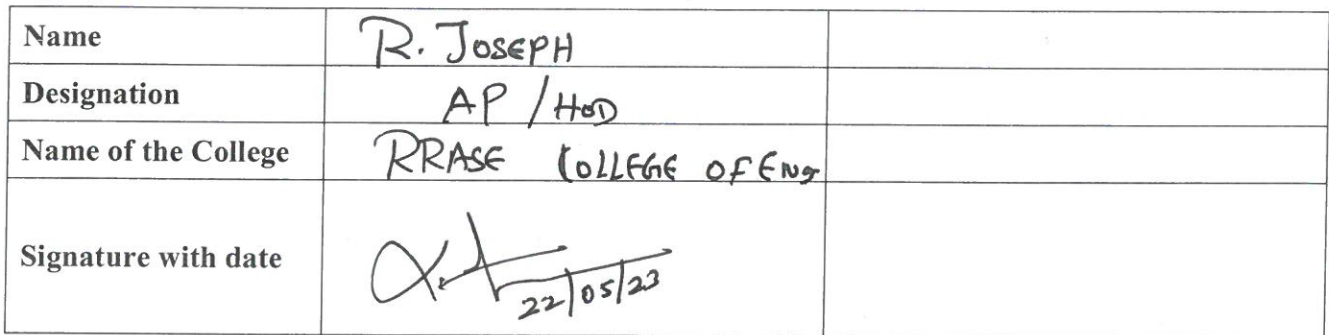 Name R. JOSEPH
Designation AP / HOD
Name of the College RRASE COLLEGE OF ENg
Signature with date 22/05/23